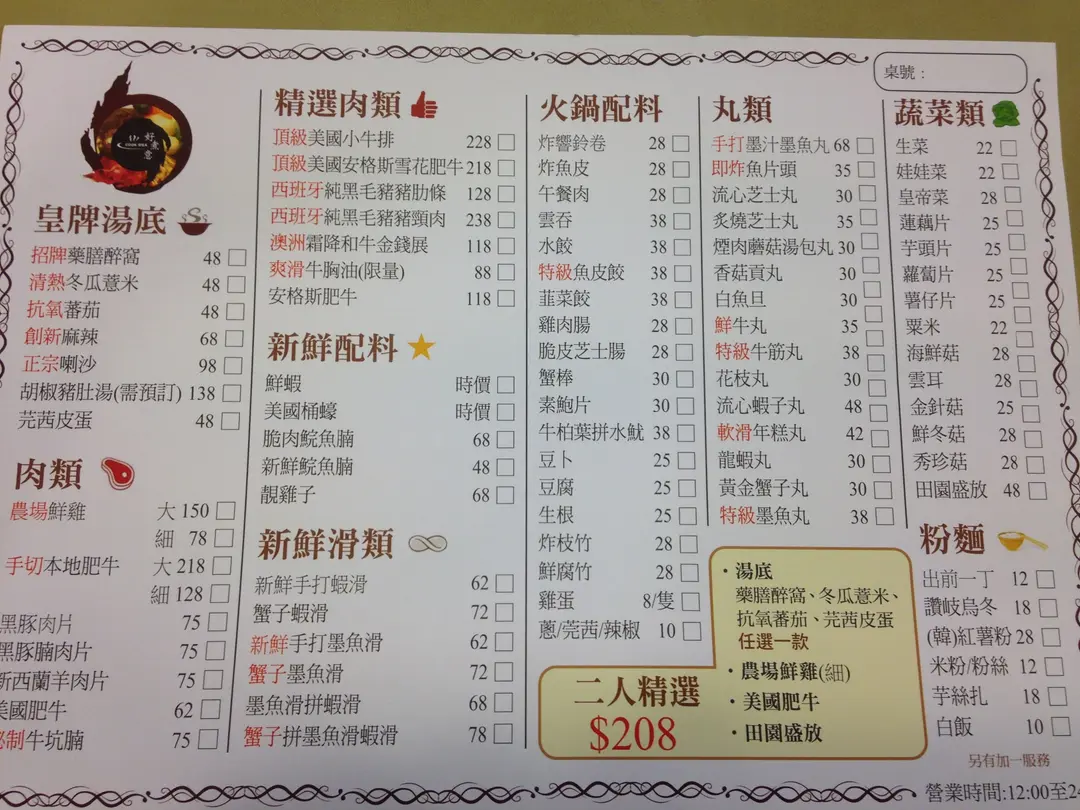 桌號：
好煮意
COOK IDEA
皇牌湯底
招牌藥膳醉窩 48
清熱冬瓜薏米 48
抗氧蕃茄 48
創新麻辣 68
正宗喇沙 98
胡椒豬肚湯(需預訂) 138
芫茜皮蛋 48
肉類
農場鮮雞 大 150
細 78
手切本地肥牛 大 218
細 128
黑豚肉片 75
黑豚腩肉片 75
新西蘭羊肉片 75
美國肥牛 62
秘制牛坑腩 75
精選肉類
頂級美國小牛排 228
頂級美國安格斯雪花肥牛 218
西班牙純黑毛豬豬肋條 128
西班牙純黑毛豬豬頸肉 238
澳洲霜降和牛金錢展 118
爽滑牛胸油(限量) 88
安格斯肥牛 118
新鮮配料
鮮蝦 時價
美國桶蠔 時價
脆肉鯇魚腩 68
新鮮鯇魚腩 48
靚雞子 68
新鮮滑類
新鮮手打蝦滑 62
蟹子蝦滑 72
新鮮手打墨魚滑 62
蟹子墨魚滑 72
墨魚滑拼蝦滑 68
蟹子拼墨魚滑蝦滑 78
火鍋配料
炸響鈴卷 28
炸魚皮 28
午餐肉 28
雲吞 38
水餃 38
特級魚皮餃 38
韮菜餃 38
雞肉腸 28
脆皮芝士腸 28
蟹棒 30
素鮑片 30
牛柏葉拼水魷 38
豆卜 25
豆腐 25
生根 25
炸枝竹 28
鮮腐竹 28
雞蛋 8/隻
蔥/莞茜/辣椒 10
丸類
手打墨汁墨魚丸 68
即炸魚片頭 35
流心芝士丸 30
炙燒芝士丸 35
煙肉蘑菇湯包丸 30
香菇貢丸 30
白魚旦 30
鮮牛丸 35
特級牛筋丸 38
花枝丸 30
流心蝦子丸 48
軟滑年糕丸 42
龍蝦丸 30
黃金蟹子丸 30
特級墨魚丸 38
蔬菜類
生菜 22
娃娃菜 22
皇帝菜 28
蓮藕片 25
芋頭片 25
蘿蔔片 25
薯仔片 25
粟米 22
海鮮菇 28
雲耳 28
金針菇 25
鮮冬菇 28
秀珍菇 28
田園盛放 48
粉麵
出前一丁 12
讚岐烏冬 18
(韓)紅薯粉 28
米粉/粉絲 12
芋絲扎 18
白飯 10
二人精選
$208
・湯底
藥膳醉窩、冬瓜薏米、
抗氧蕃茄、芫茜皮蛋
任選一款
・農場鮮雞(細)
・美國肥牛
・田園盛放
另有加一服務
營業時間:12:00至2